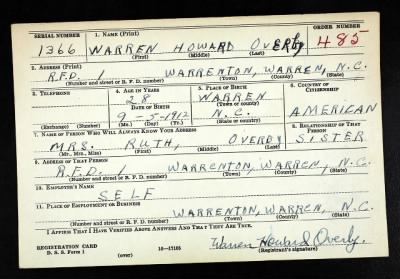 SERIAL NUMBER 1. NAME (Print) ORDER NUMBER
1366 WARREN HOWARD OVERBY 485
(First) (Middle) (Last)
2. ADDRESS (Print)
R.F.D. 1 WARRENTON, WARREN, N.C.
(Number and street or R. F. D. number) (Town) (County) (State)
3. TELEPHONE 4. AGE IN YEARS 5. PLACE OF BIRTH 6. COUNTRY OF CITIZENSHIP
28 WARREN
DATE OF BIRTH (Town or county)
9-5-1912 N.C. AMERICAN
(Exchange) (Number) (Mo.) (Day) (Yr.) (State or country)
7. NAME OF PERSON WHO WILL ALWAYS KNOW YOUR ADDRESS 8. RELATIONSHIP OF THAT PERSON
MRS. RUTH, OVERBY SISTER
(Mr., Mrs., Miss) (First) (Middle) (Last)
9. ADDRESS OF THAT PERSON
R.F.D. 1 WARRENTON, WARREN, N.C.
(Number and street or R. F. D. number) (Town) (County) (State)
10. EMPLOYER'S NAME
SELF
11. PLACE OF EMPLOYMENT OR BUSINESS
WARRENTON, WARREN, N.C.
(Number and street or R. F. D. number) (Town) (County) (State)
I AFFIRM THAT I HAVE VERIFIED ABOVE ANSWERS AND THAT THEY ARE TRUE.
REGISTRATION CARD
D. S. S. Form 1 16-17105 Warren Howard Overby.
(over) (Registrant's signature)